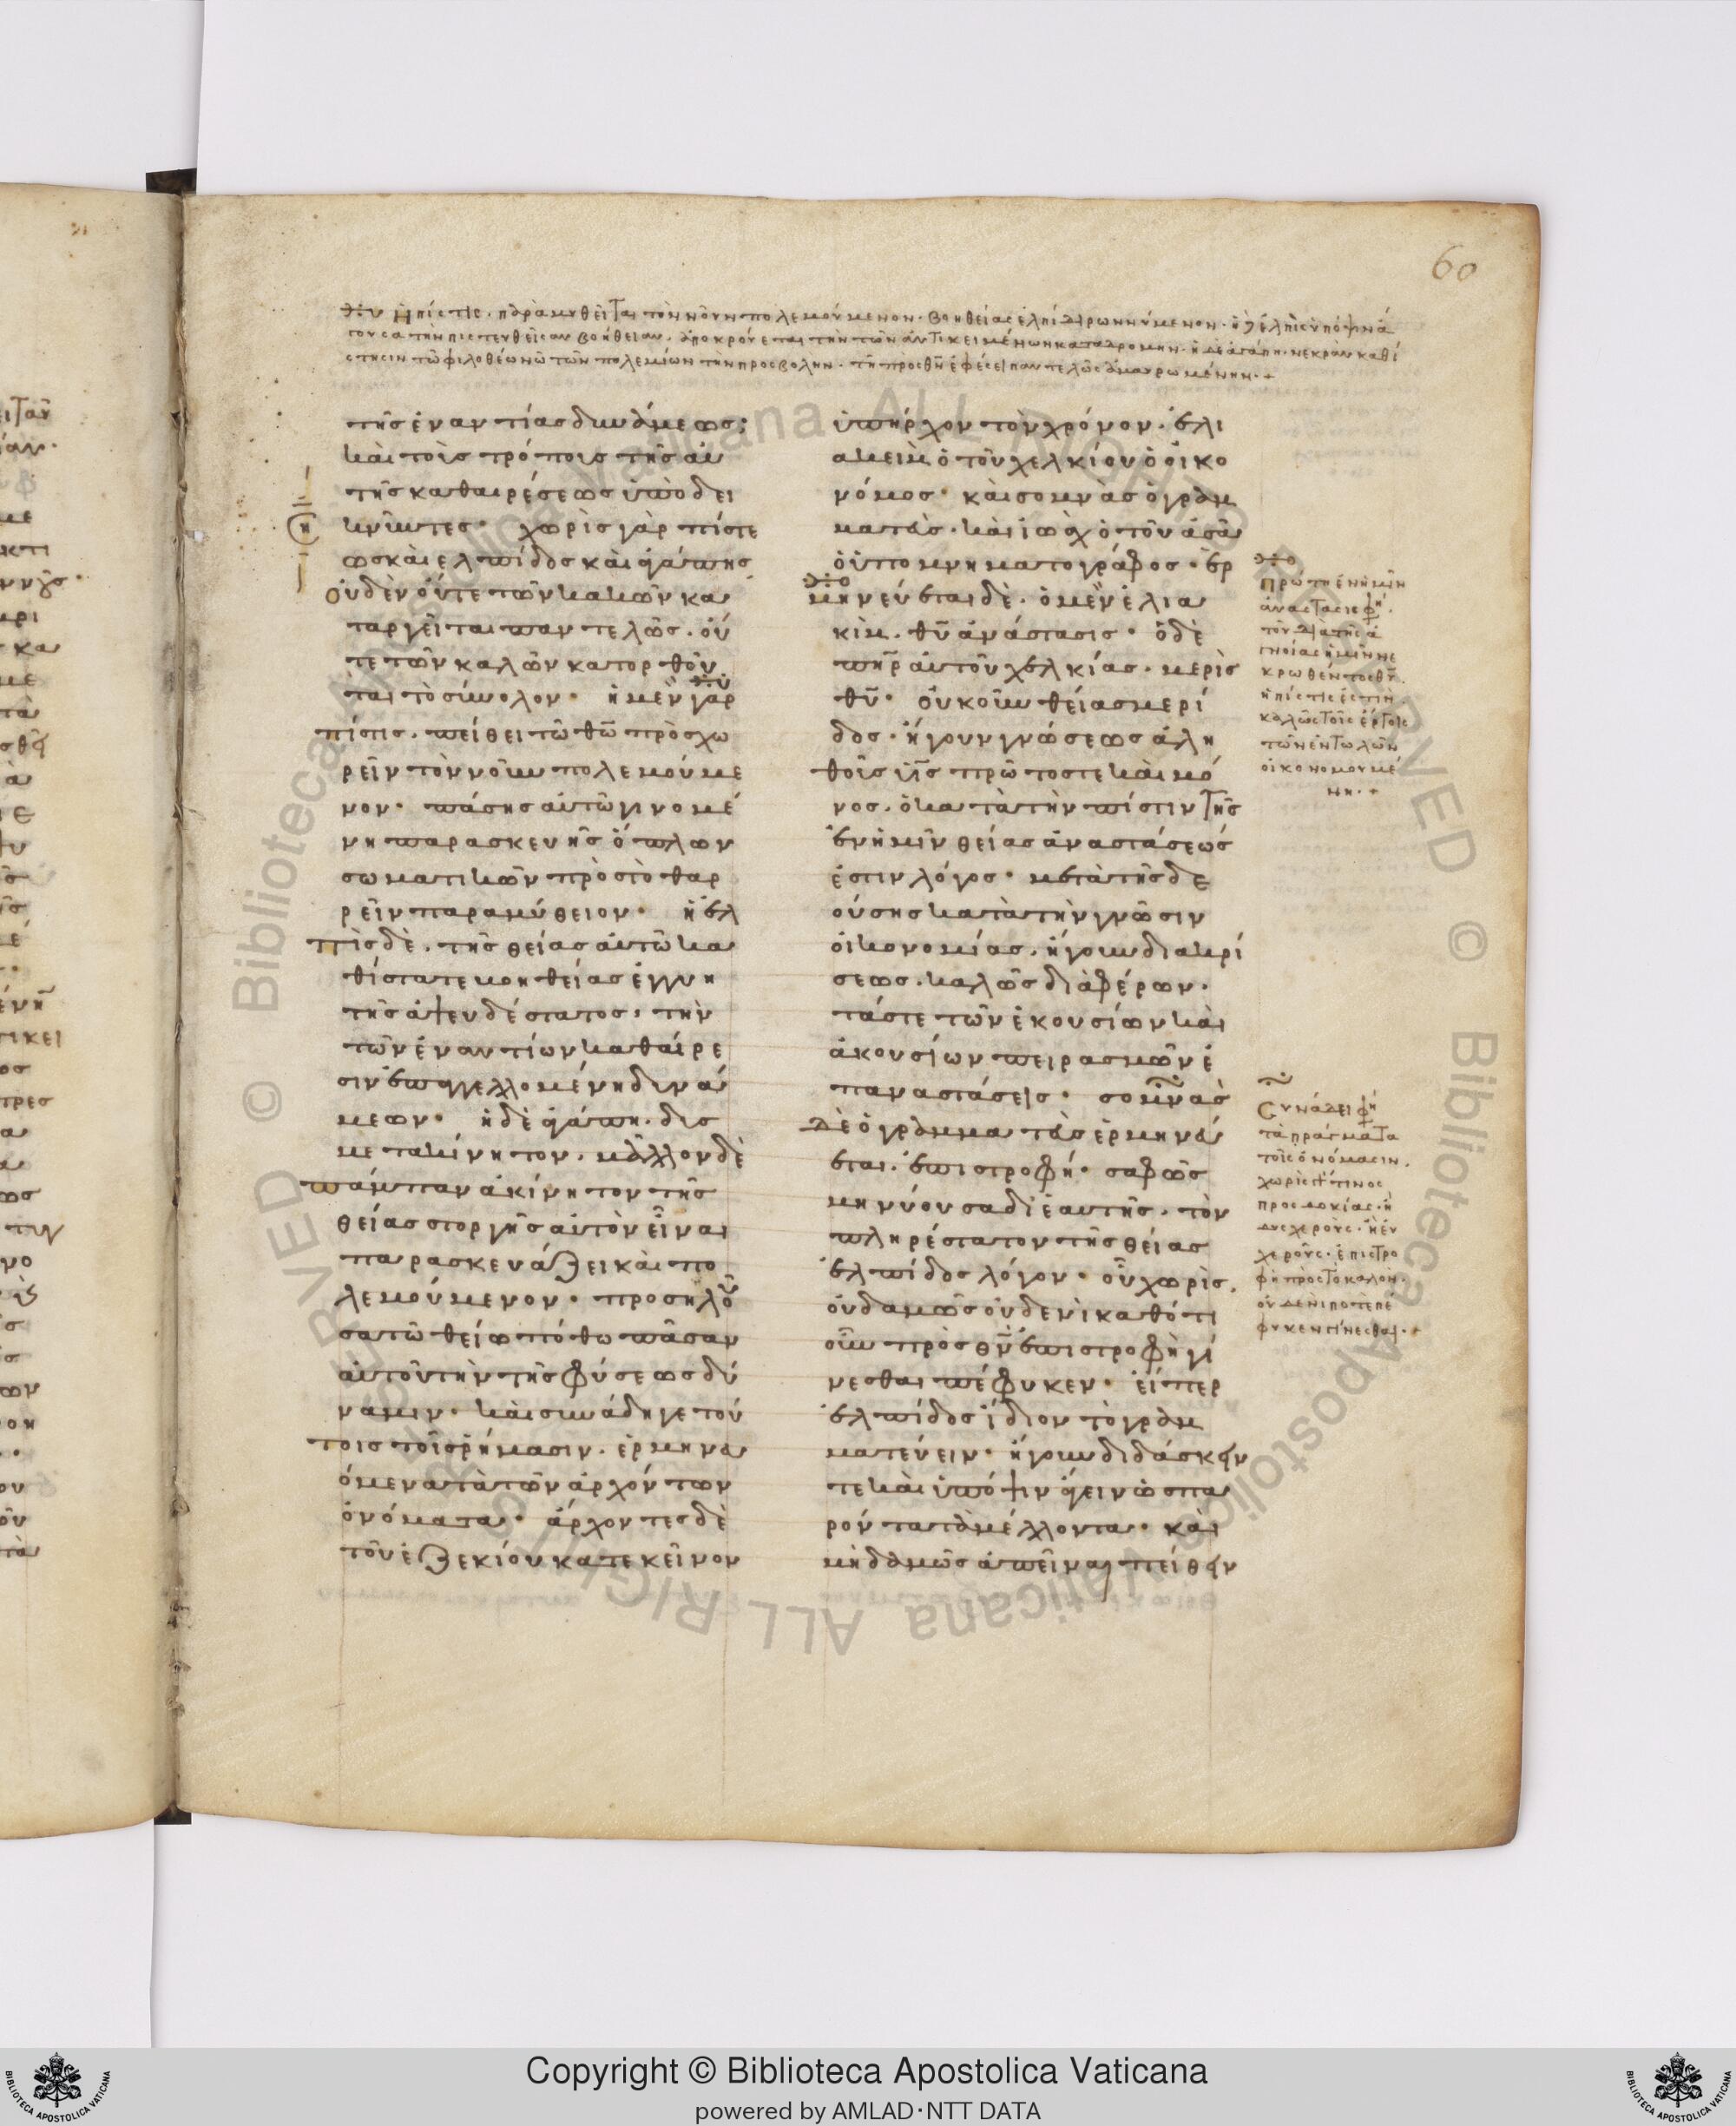 60
θ̅ν Ἡ πίστις· παραμυθεῖται τὸν νοῦν πολεμούμενον· βοηθείας ἐλπίδι ῥωννύμενον· ἡ δ ἐλπὶς ὑπόψιν ἄ
τουσα τὴν πιστευθεῖσαν βοήθειαν· ἀποκρούεται τὴν τῶν ἀντικειμένων καταδρομήν· ἡ δὲ ἀγάπη· νεκρὰν καθί
στησιν τῶ φιλοθέω νῶ τῶν πολεμίων τὴν προσβολήν· τῆ πρὸς θ̅ν ἐφέσει παντελῶς ἀμαυρωμένην·+
τῆς ἐναντίας δυνάμεως·
καὶ τοῖς τρόποις τῆς αὐ
τῆς καθαιρέσεως ὑποδει
κνῦντες· χωρὶς γὰρ πίστε
ως καὶ ελπίδος καὶ ἀγάπης
οὐδὲν οὔτε τῶν κακῶν κα
ταργεῖται παντελῶς· οὔ
τε τῶν καλῶν κατορθοῦ
ται τὸ σύνολον· ἡ μὲν γὰρ
πίστις· πείθει τῶ θ̅ω προσχω
ρεῖν τὸν νοῦν πολεμούμε
νον· πάσης αὐτῶ γινομέ
νη παρασκευῆς ὅπλων
σωματικῶν πρὸς τὸ θαρ
ρεῖν παραμύθειον· ἡ ἐλ
πὶς δὲ· τῆς θείας αὐτῶ κα
θίσταται βοηθείας ἐγγυη
τὴς ἀψευδέστατος· τὴν
τῶν ἐναντίων καθαίρε
σιν ἐπαγγελλομένη δυνά
μεων· ἡ δὲ ἀγάπη· δυσ
μετακίνητον· μᾶλλον δὲ
πάμπαν ἀκίνητον τῆς
θείας στοργῆς αὐτὸν εἶναι
παρασκευάζει καὶ πο
λεμούμενον· προσηλοῦ
σα τῶ θείω πόθω πᾶσαν
αὐτοῦ τὴν τῆς φύσεως δύ
ναμιν· καὶ συνάδη γε τού
τοις τοῖς ῥήμασιν· ἑρμηνευ
όμενα τὰ τῶν ἀρχόντων
ὀνόματα· ἄρχοντες δὲ
τοῦ ἐζεκίου κατ εκεῖνον
ὑπῆρχον τὸν χρόνον· ἐλι
ακεὶμ ὁ τοῦ χελκίου ὁ οἰκο
νόμος· καὶ σομνὰς ὁ γραμ
ματεὺς· καὶ ἰωὰχ ὁ τοῦ ἀσὰφ
ὁ ὑπομνηματογράφος· ἑρ
μηνεύεται δὲ· ὁ μὲν ἐλια
κὶμ· θ̅υ ἀνάστασις· ὁ δὲ
π̅η̅ρ αὐτοῦ χελκίας· μερὶς
θ̅υ· οὐκοῦν θείας μερί
δος· ἤγουν γνώσεως ἀλη
θοῦς υ̅ς πρῶτός τε καὶ μό
νος· ὁ κατὰ τὴν πίστιν τῆς
ἐν ἡμῖν θείας ἀναστάσεώς
ἐστιν λόγος· μετὰ τῆς δε
ούσης κατὰ τὴν γνῶσιν
οἰκονομίας· ἤγουν διακρί
σεως· καλῶς διαφέρων·
τάς τε τῶν ἑκουσίων καὶ
ἀκουσίων πειρασμῶν ἐ
παναστάσεις· σομνὰς
δὲ ὁ γραμματεὺς ἑρμηνεύ
εται· ἐπιστροφή· σαφῶς
μηνύουσα δι ἑαυτῆς· τὸν
πληρέστατον τῆς θείας
ἐλπίδος λόγον· οὗ χωρὶς
οὐδαμῶς οὐδενὶ καθότι
οῦν πρὸς θ̅ν ἐπιστροφὴ γί
νεσθαι πέφυκεν· εἴπερ
ἐλπίδος ἴδιον τὸ γραμ
ματεύειν· ἤγουν διδάσκειν
τε καὶ ὑπόψιν ἄγειν ὡς πα
ρόντα τὰ μέλλοντα· καὶ
μηδαμῶς ἀπεῖναι πείθειν
Πρώτη ἐν ἡμῖν
ἀνάστασις φη·
τοῦ διὰ τῆς ἀ
γνοίας ἡμῖν νε
κρωθέντος θ̅υ·
ἡ πίστις ἐστὶν
καλῶς τοῖς ἔργοις
τῶν ἐντολῶν
οἰκονομουμέ
νη·+
Συνάδει φη
τὰ πράγματα
τοῖς ὀνόμασιν·
χωρὶς γάρ τινος
προσδοκίας· ἢ
δυσχεροῦς· ἢ εὐ
χεροῦς· ἐπιστρο
φὴ πρὸς τὸ καλὸν·
οὐδενὶ ποτὲ πέ
φυκεν γίνεσθαι·+
Copyright © Biblioteca Apostolica Vaticana
powered by AMLAD·NTT DATA